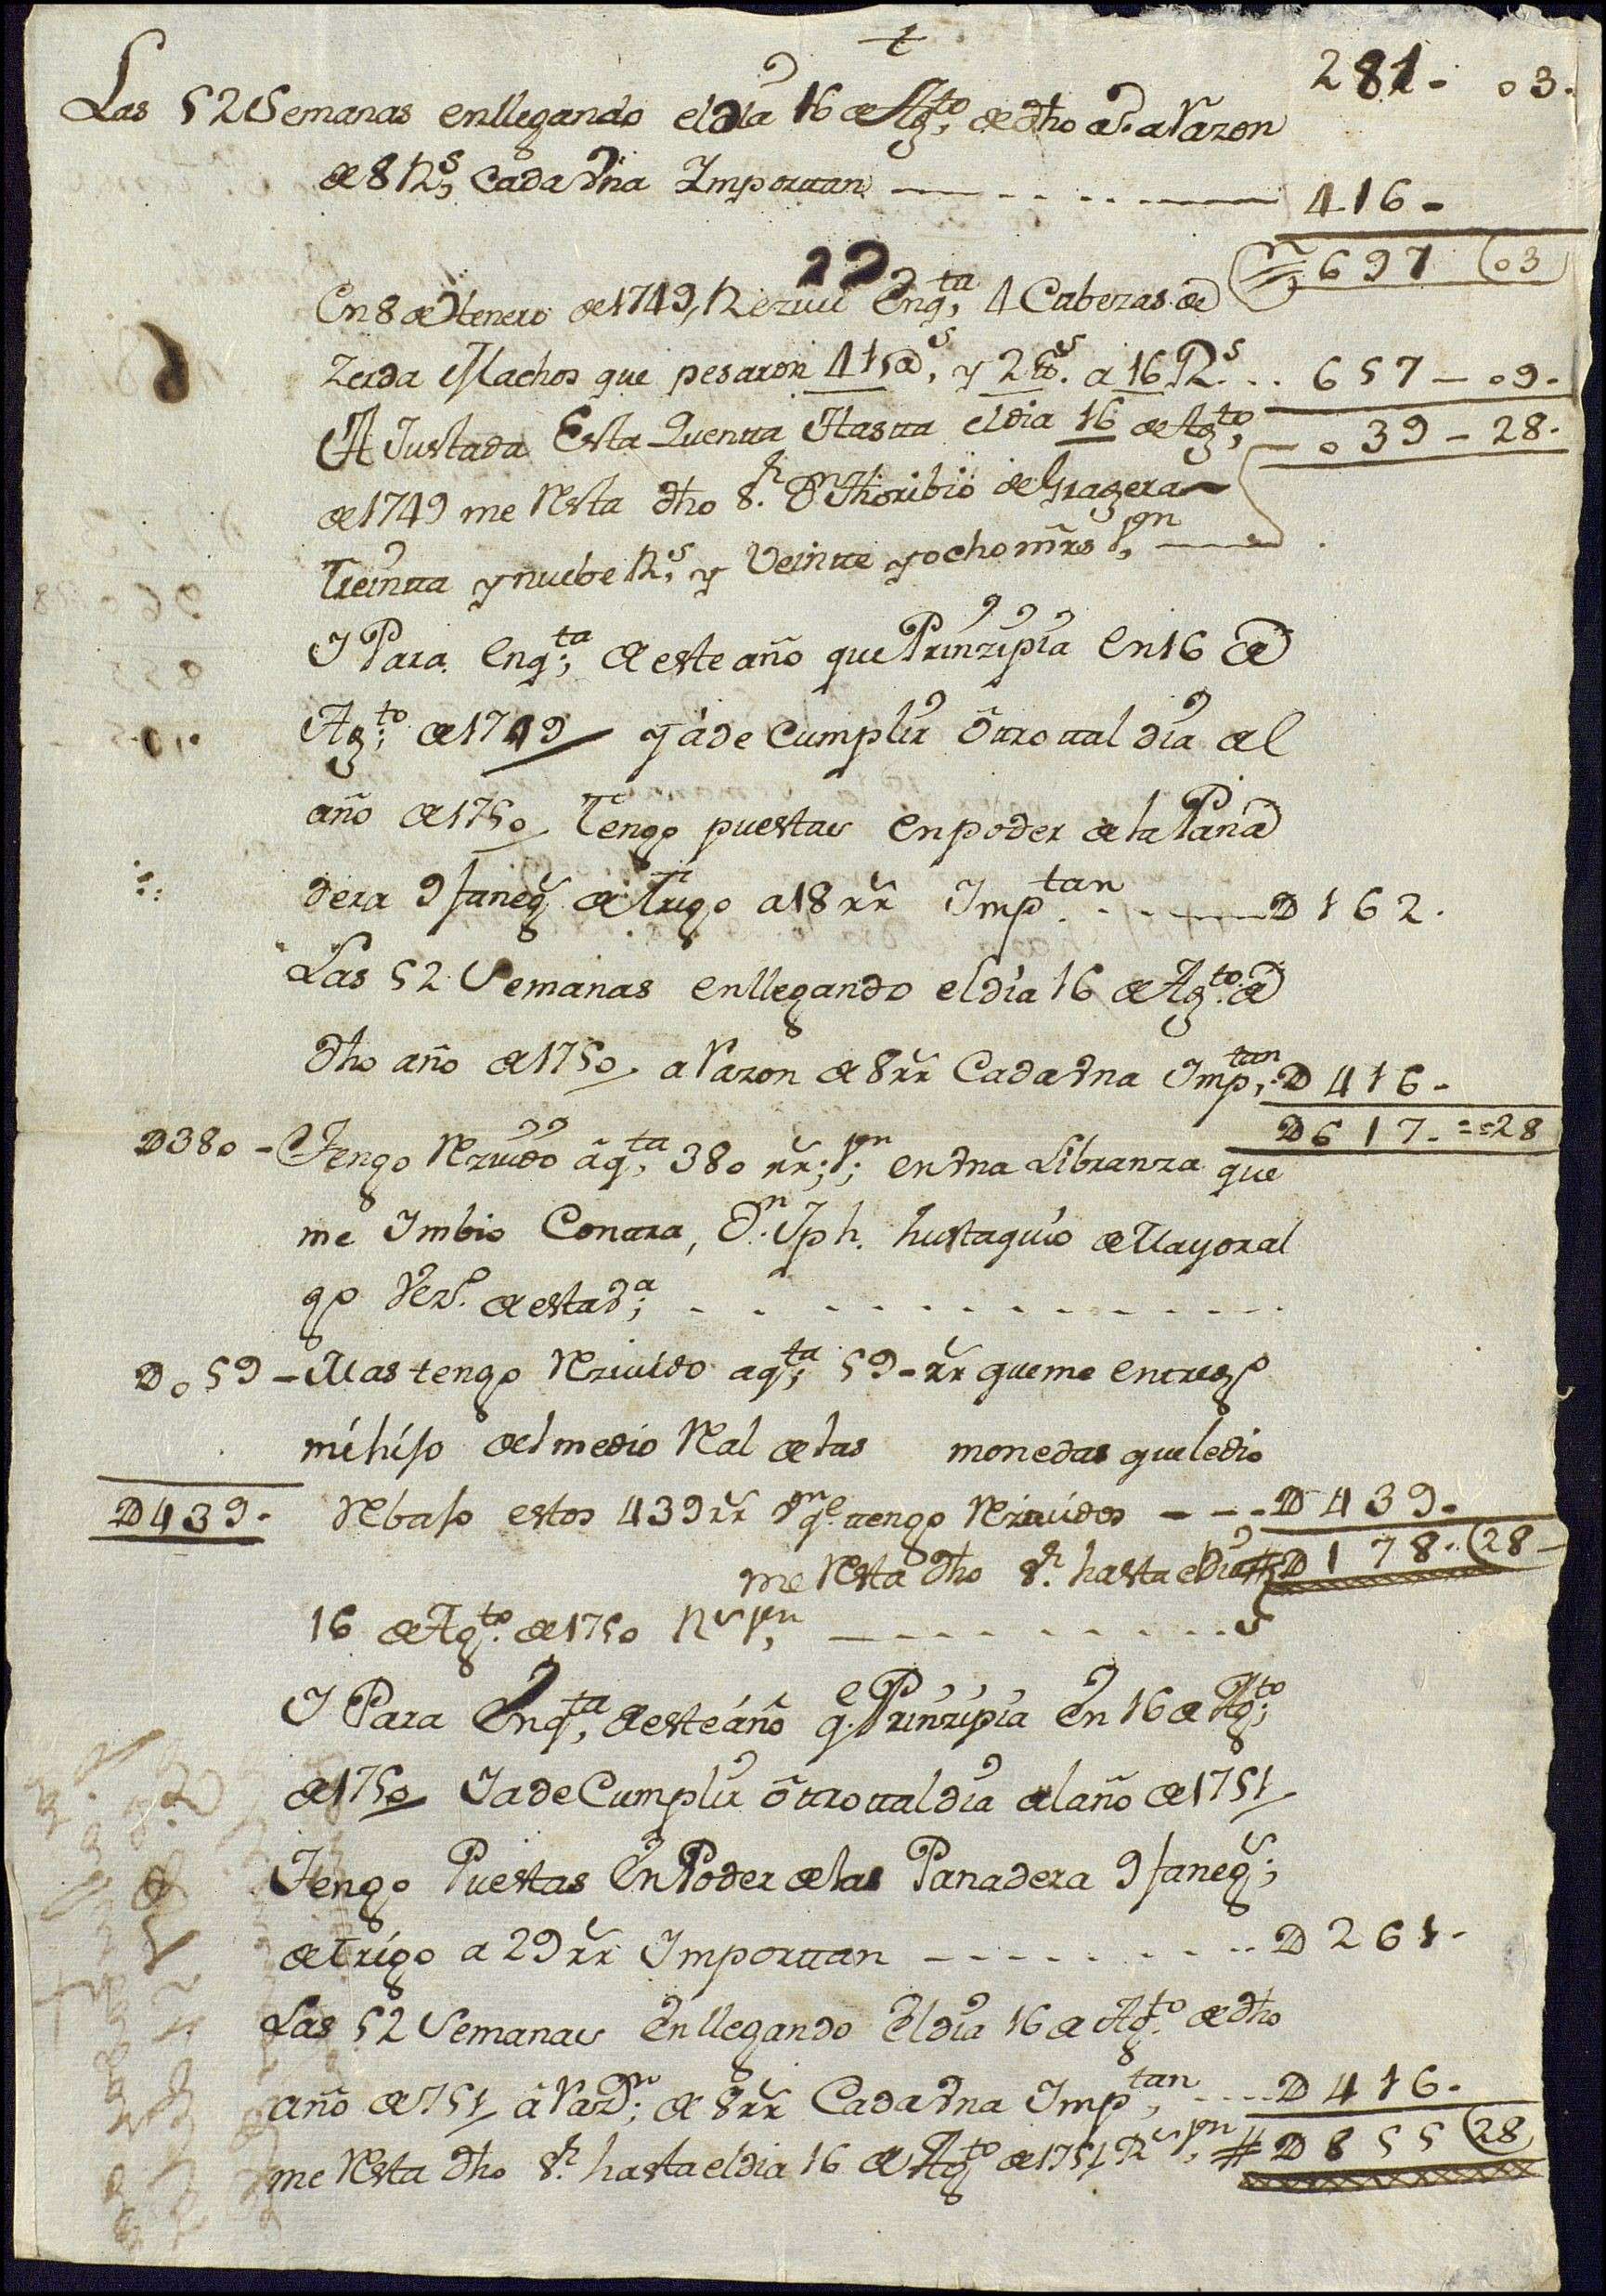 t
281- 03.
Las 52 Semanas enllegando el dia 16 de Agto, de dho a. a Razon
de 8 Rs, cada Vna Importan 416-
697 03
En 8 de Henero de 1749, Reziui Enqta, 4 Cabezas de
Zerda Machos que pesaron 41 @s, y 2 lls. a 16 Rs... 657-09.
AJustada Esta Quenta Hasta el dia 16 de Agto, -039-28.
de 1749 me Resta dho Sr. Dn Thoribio de Gragera
Treinta y nuebe Rs, y Veinte y ocho mrs Vn,
I Para Enqta; de este año que Prinzipia En 16 de
Agto; de 1749 y áde Cumplir ôtro tal dia del
año de 1750 Tengo puestas en poder de la Pana
dera 9 faneqs de Trigo a 18 rrs Imptan D 162.
Las 52 Semanas enllegando el dia 16 de Agto. de
dho año de 1750 a Razon de 8 rrs Cada Vna Imptan, D 416-
D617.==28
D380- Tengo Rziuido âqta, 380 rrs; Vn; en Vna Libranza que
me Imbio Contra, Dn. Jph. Eustaquio de Mayoral
go Vezo. de esta Va;
D059- Mas tengo Rziuido aqta; 59-rrs que me entrego
mi hijo del medio Real de las monedas que le dio
D439. Rebajo estos 439 rrs Vn qe. tengo Rziuidos ---D 439.
me Resta dho Sr. hasta el Dia # D 178.28-
16 de Agto. de 1750 Rs Vn,
I Para Enqta, de este áño qe. Prinzipia En 16 de Agto;
de 1750 I a de Cumplir ôtro tal dia del año de 1751
Tengo Puestas En Poder de las Panadera 9 faneqs;
de Trigo a 29 rrs Importan D 261-
Las 52 Semanas En llegando El dia 16 de Agto. de dho
año de 751 â Razn; de 8 rrs Cada Vna Imptan, D 416.
me Resta dho Sr. hasta el dia 16 de Agto de 1751 Rs Vn, # D 855 28